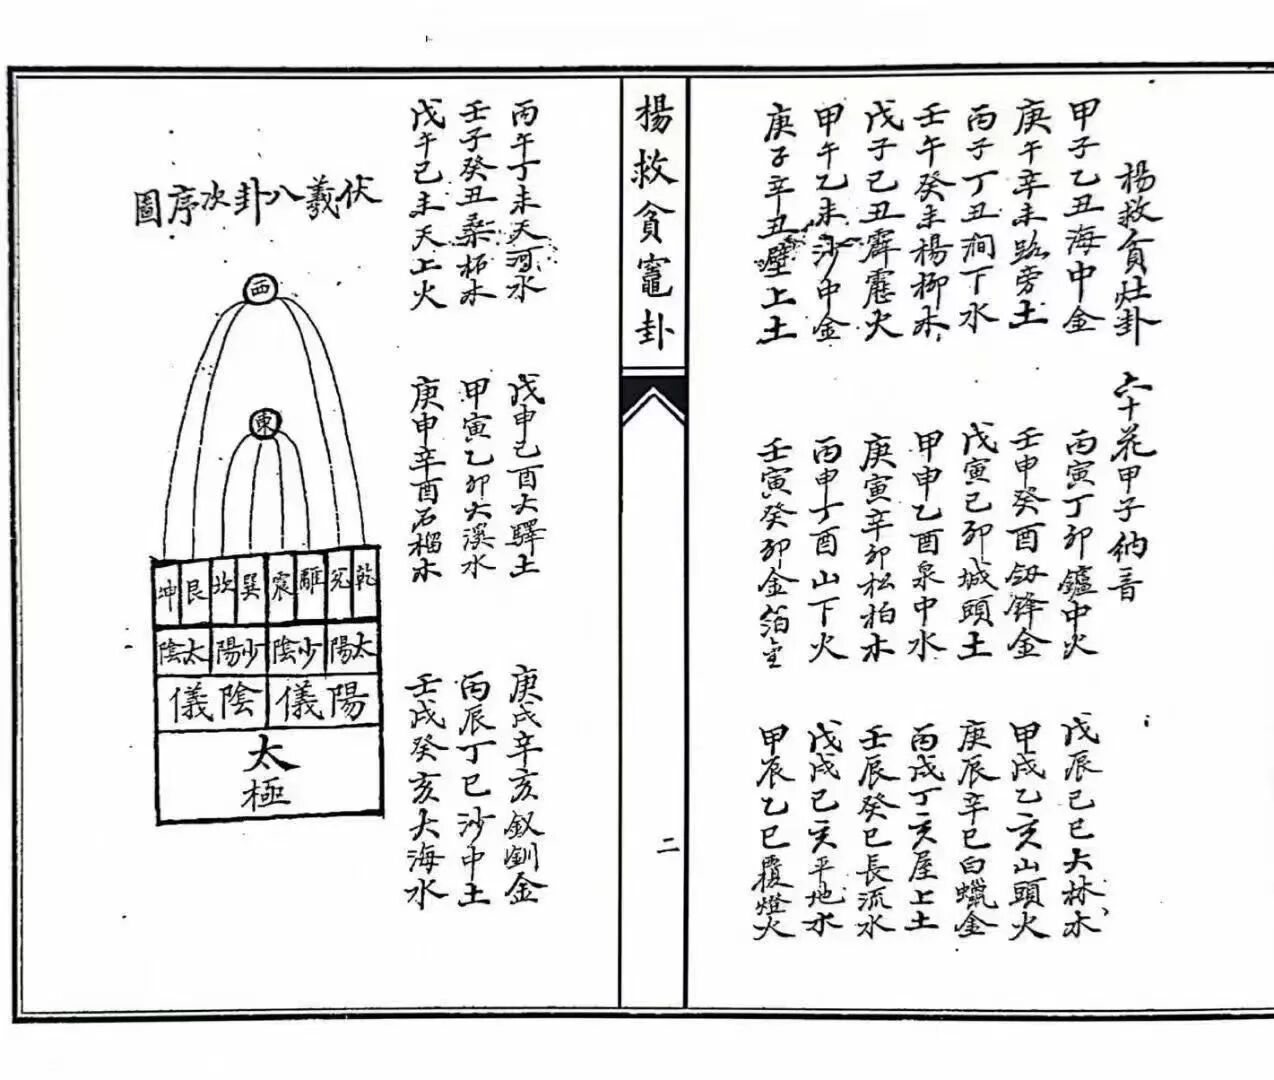 楊救貧灶卦 六十花甲子納音
甲子乙丑海中金 丙寅丁卯鑪中火 戊辰己巳大林木
庚午辛未路旁土 壬申癸酉釼鋒金 甲戌乙亥山頭火
丙子丁丑澗下水 戊寅己卯城頭土 庚辰辛巳白蠟金
壬午癸未楊柳木 甲申乙酉泉中水 丙戌丁亥屋上土
戊子己丑霹靂火 庚寅辛卯松柏木 壬辰癸巳長流水
甲午乙未沙中金 丙申丁酉山下火 戊戌己亥平地木
庚子辛丑壁上土 壬寅癸卯金箔金 甲辰乙巳覆燈火
楊救貧竈卦
二
丙午丁未天河水 戊申己酉大驛土 庚戌辛亥釵釧金
壬子癸丑桑柘木 甲寅乙卯大溪水 丙辰丁巳沙中土
戊午己未天上火 庚申辛酉石榴木 壬戌癸亥大海水
伏羲八卦次序圖
西
東
乾兌離震巽坎艮坤
太陽 少陰 少陽 太陰
陽儀 陰儀
太
極